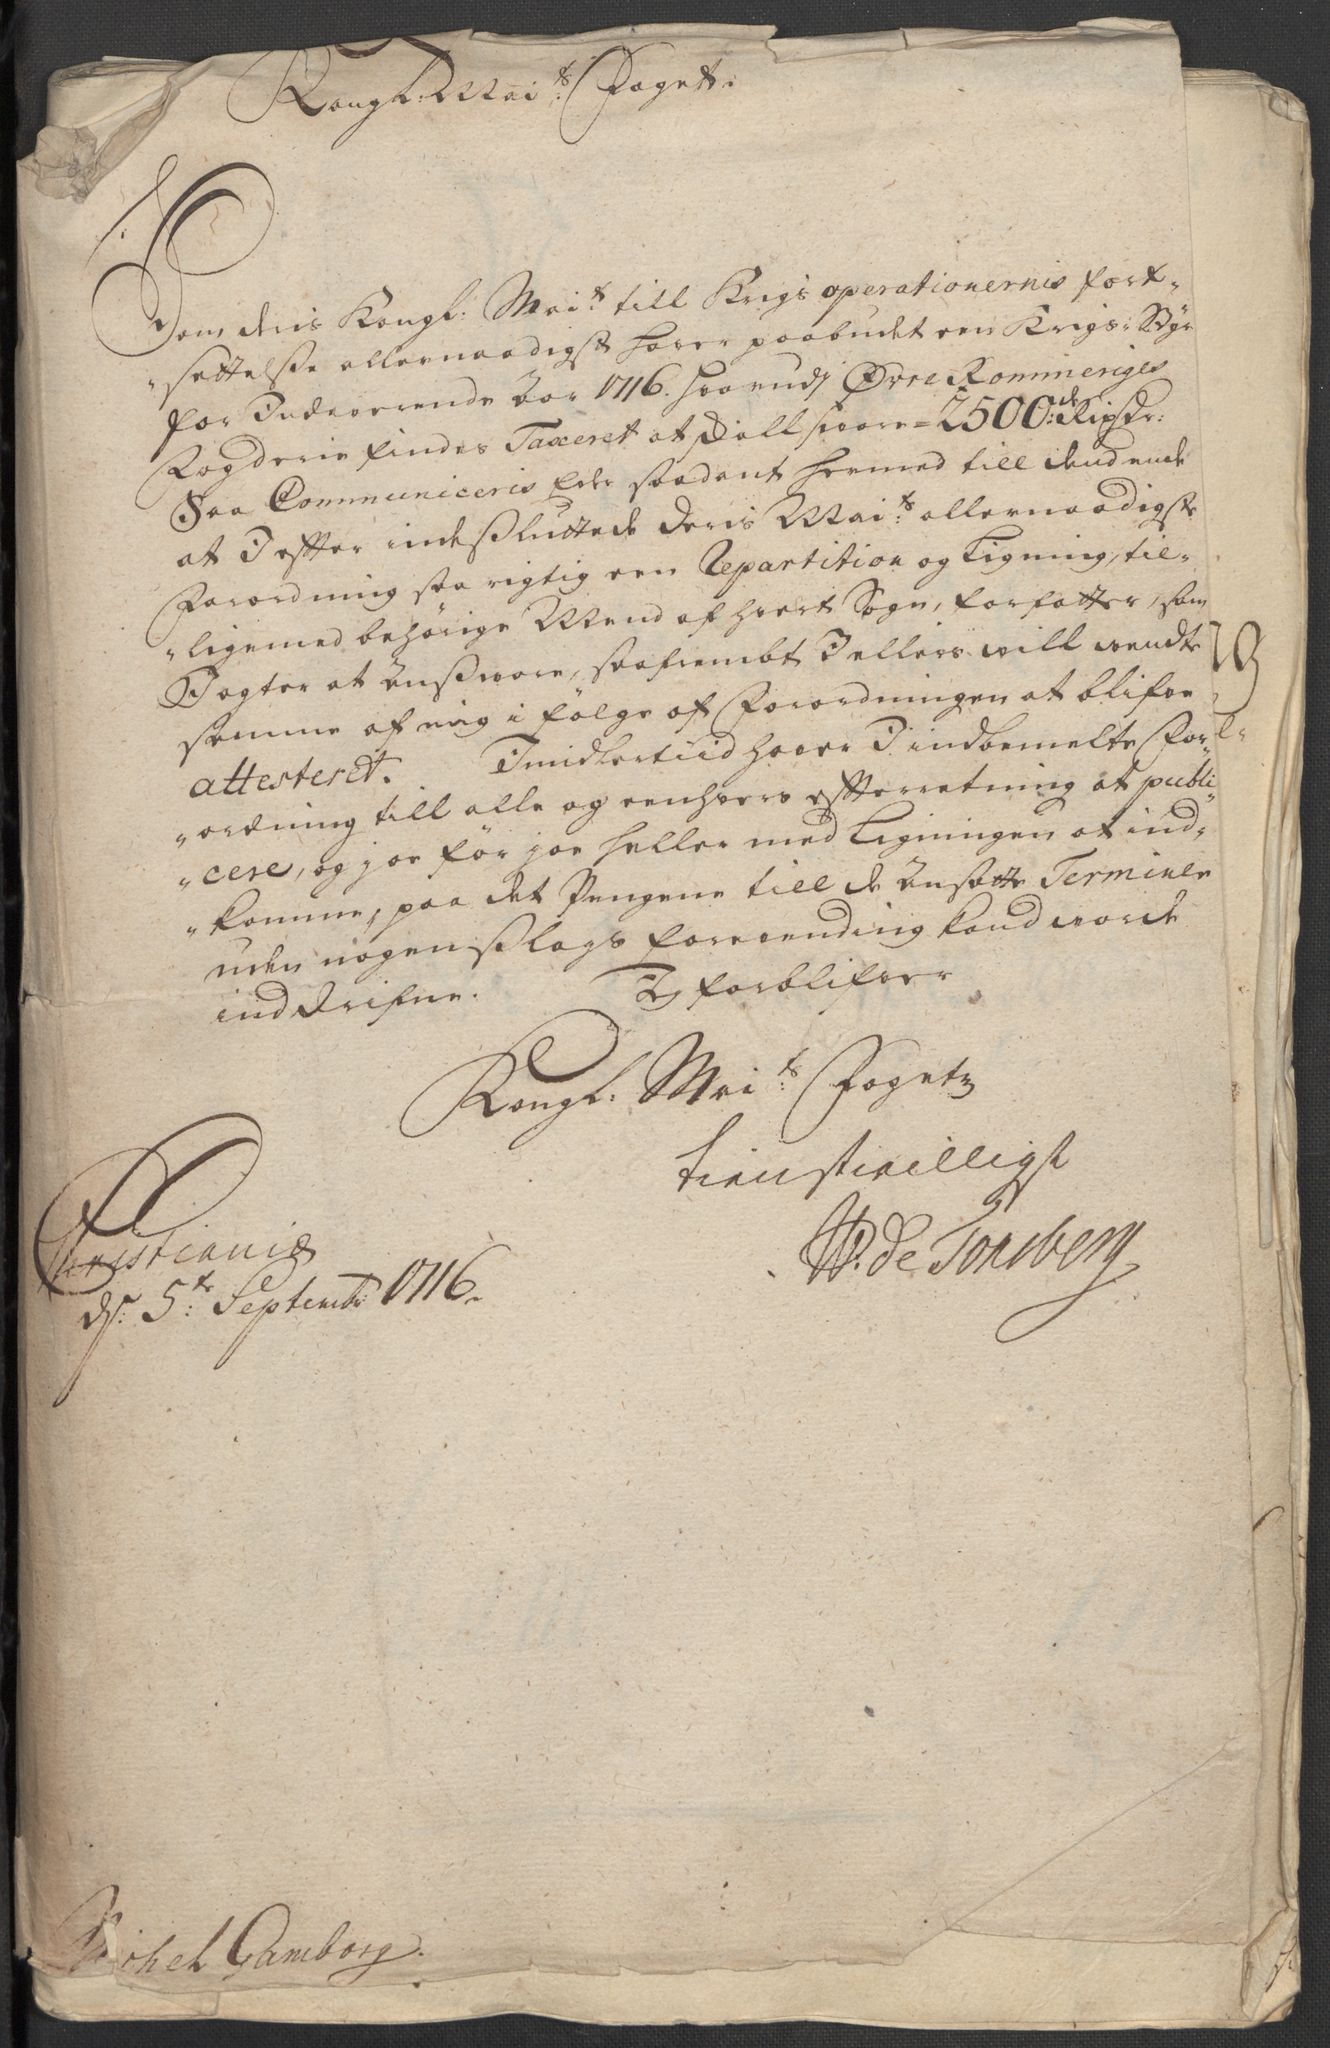 Kongl: Maits: Foget.
Som deris Kongl: Mait: till Krigs operationernis fort-
settelse allernaadigst hafver paabudet een Krigs-Styr
for Indeverende Aar 1716. hvorudj Øvre Rommeriges
Fogderie findes Taxeret at skall svare = 2500: de Ripsdr:
Saa Communiceris Eder saadant hermed till dend ende
at I effter indesluttede Deris Maits: allernaadigste
Forordning saa rigtig een Repartition og Ligning, til-
ligemed behörige Mend af hvert Sogn, forfatter, som
I agter at ansvare, saafrembt I ellers will wendte
samme af mig i fölge af Forordningen at blifve
attesteret. Imidlertiid haver I indbemelte For-
ordning till alle og eenhvers effterretning at publi-
cere, og joe för joe heller med Ligningen at ind-
komme, paa det Pengene till de ansatte Terminer
uden nogenslags forevending kand worde
inddrifne. Jeg forblifver
Kongl: Maits: Fogetz
tienstwilligst
W. de Tonsberg
Christiania
ds: 5te: Septembr: 1716.
Michel Gamborg.